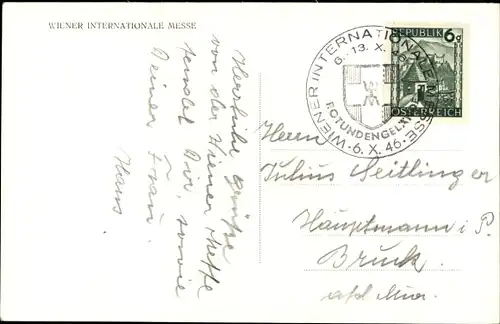 WIENER INTERNATIONALE MESSE
Herrliche Grüße
von der Wiener Messe
sendet Dir, sowie
Deiner Frau
Hans.
WIENER INTERNATIONALE MESSE
6.-13. X. 46
ROTUNDENGELÄNDE
WIEN · 6. X. 46
REPUBLIK
6g
ÖSTERREICH
Herrn
Julius Seitlinger
Hauptmann i. P.
Bruck
a/d Mur.